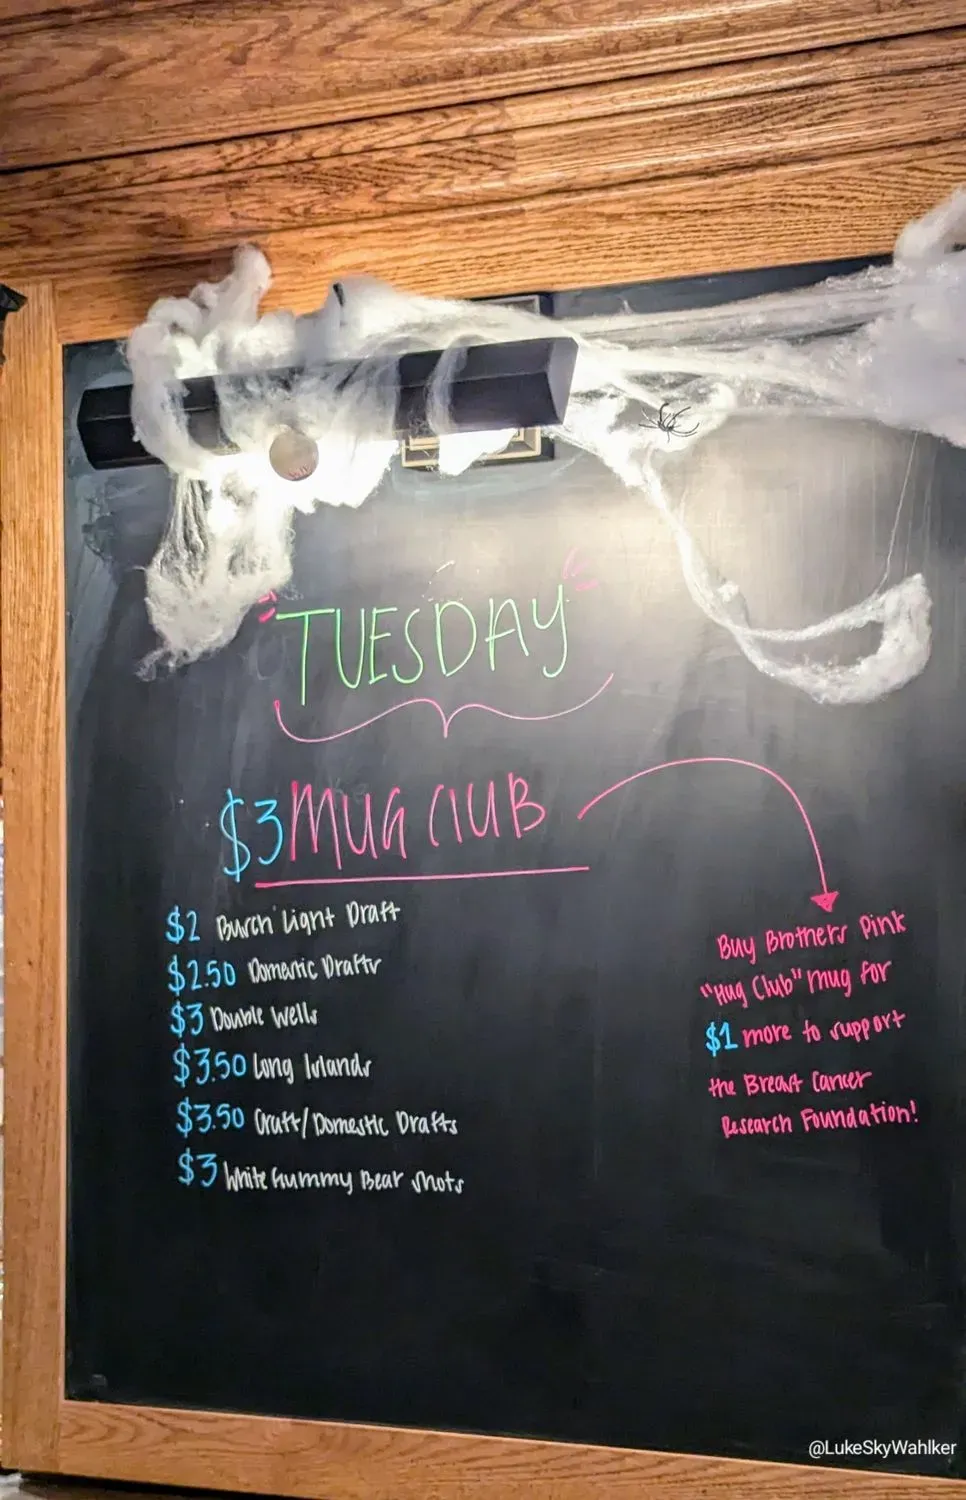 TUESDAY
$3 MUG CLUB
$2 Busch Light Draft
$2.50 Domestic Drafts
$3 Double Wells
$3.50 Long Islands
$3.50 Craft/Domestic Drafts
$3 White Gummy Bear Shots
Buy Brothers Pink
"Hug Club" mug for
$1 more to support
the Breast Cancer
Research Foundation!
@LukeSkyWahlker